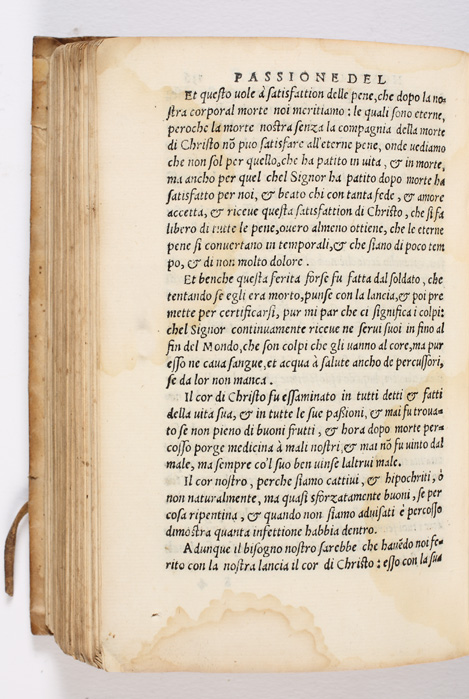 PASSIONE DEL
Et questo uole à satisfattion delle pene, che dopo la no-
stra corporal morte noi meritiamo: le quali sono eterne,
peroche la morte nostra senza la compagnia della morte
di Christo nõ puo satisfare all'eterne pene, onde uediamo
che non sol per quello, che ha patito in uita, & in morte,
ma ancho per quel chel Signor ha patito dopo morte ha
satisfatto per noi, & beato chi con tanta fede, & amore
accetta, & riceue questa satisfattion di Christo, che si fa
libero di tutte le pene, ouero almeno ottiene, che le eterne
pene si conuertano in temporali, & che siano di poco tem
po, & di non molto dolore.
Et benche questa ferita forse fu fatta dal soldato, che
tentando se egli era morto, punse con la lancia, & poi pre
mette per certificarsi, pur mi par che ci significa i colpi:
chel Signor continuamente riceue ne serui suoi in fino al
fin del Mondo, che son colpi che gli uanno al core, ma pur
esso ne caua sangue, et acqua à salute ancho de percussori,
se da lor non manca.
Il cor di Christo fu essaminato in tutti detti & fatti
della uita sua, & in tutte le sue passioni, & mai fu troua-
to se non pieno di buoni frutti, & hora dopo morte per-
cosso porge medicina à mali nostri, & mai nõ fu uinto dal
male, ma sempre co'l suo ben uinse laltrui male.
Il cor nostro, perche siamo cattiui, & hipochriti, ò
non naturalmente, ma quasi sforzatamente buoni, se per
cosa ripentina, & quando non siamo aduisati è percosso
dimostra quanta infettione habbia dentro.
Adunque il bisogno nostro sarebbe che hauẽdo noi fe-
rito con la nostra lancia il cor di Christo: esso con la sua